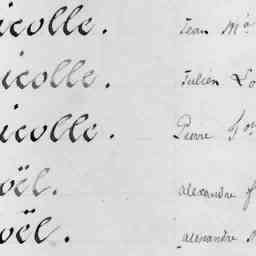 icolle. Jean Ma
icolle. Julien Lo
icolle. Pierre
oël. alexandre f
oël. alexandre